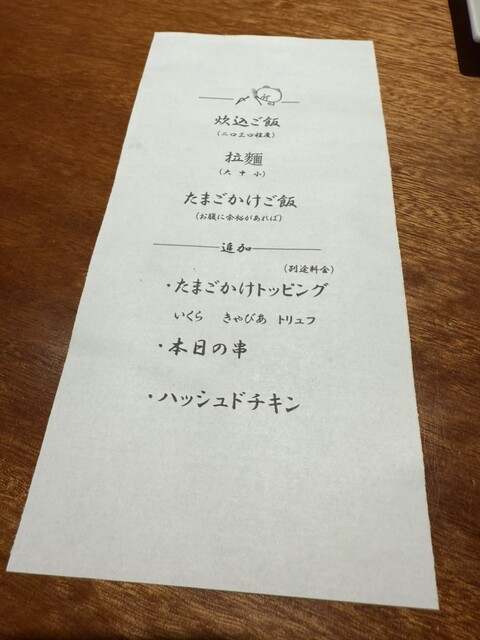 〆
炊込ご飯
(二口三口程度)
拉麺
(大 中 小)
たまごかけご飯
(お腹に余裕があれば)
追加
(別途料金)
・たまごかけトッピング
いくら きゃびあ トリュフ
・本日の串
・ハッシュドチキン